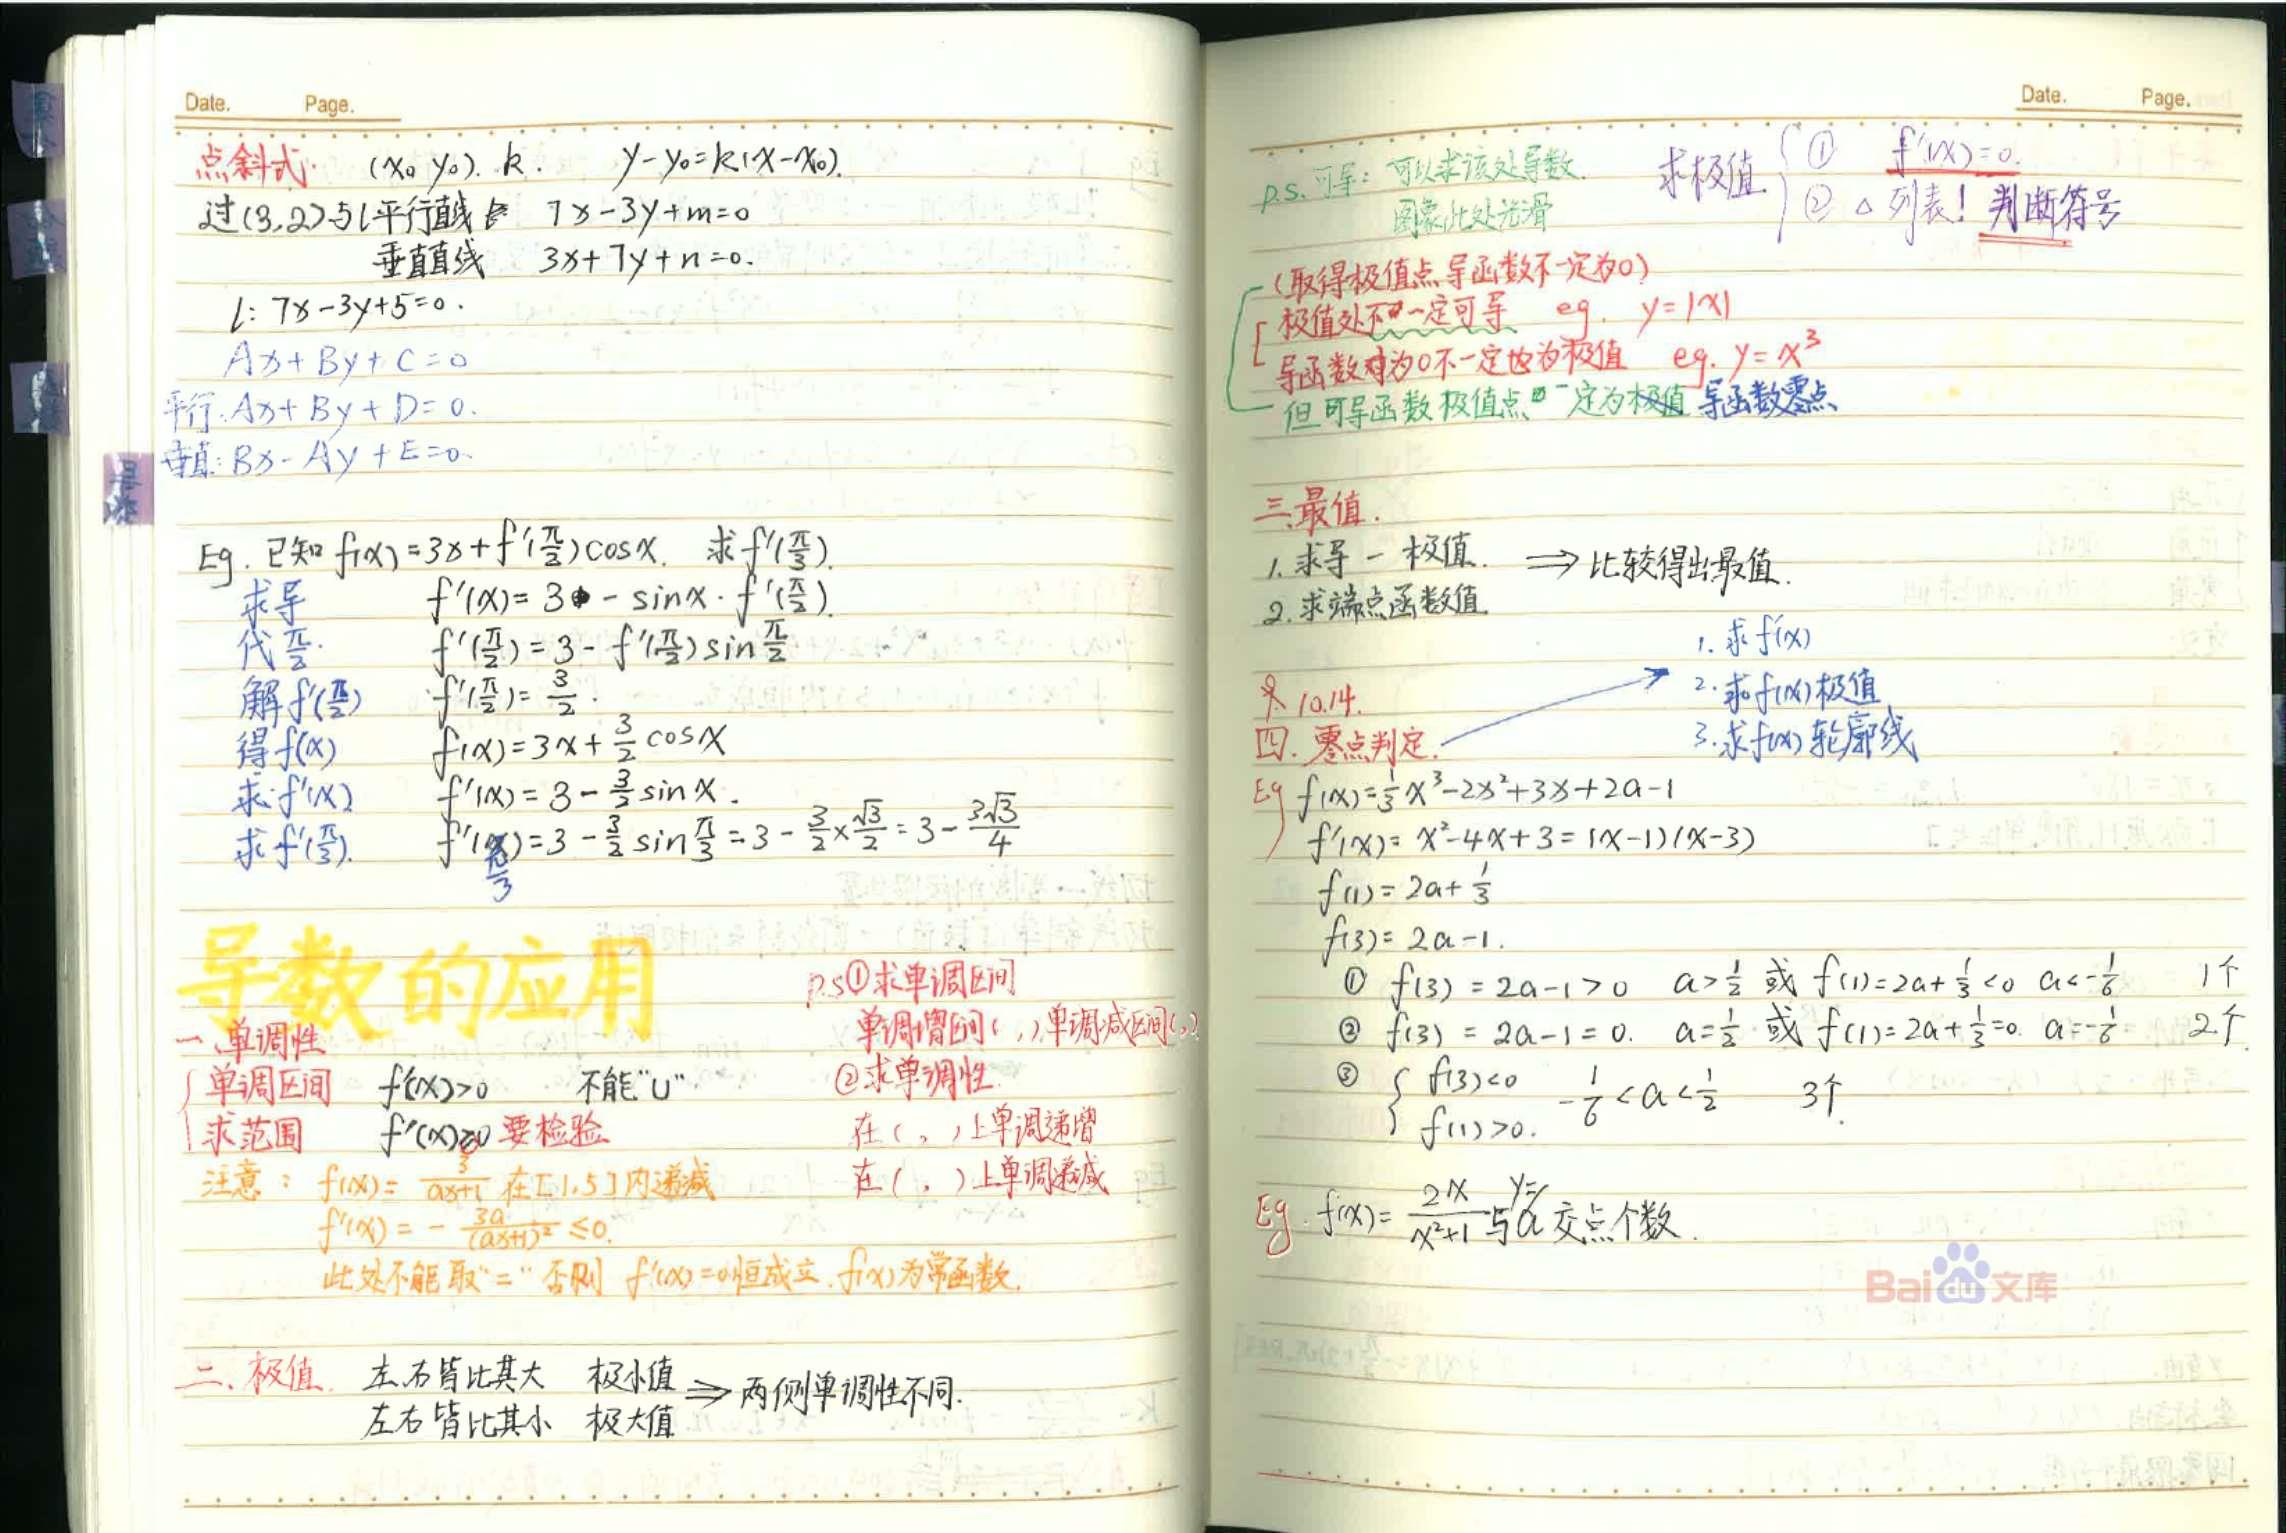 Date. Page.
点斜式. (x₀ y₀). k. y-y₀=k(x-x₀).
过(3,2)与l平行直线 7x-3y+m=0
垂直直线 3x+7y+n=0.
l: 7x-3y+5=0.
Ax+By+C=0
平行:Ax+By+D=0.
垂直:Bx-Ay+E=0.
Eg. 已知f(x)=3x+f'(π/2)cosx. 求f'(π/3).
求导 f'(x)=3-sinx·f'(π/2).
代π/2. f'(π/2)=3-f'(π/2)sinπ/2
解f'(π/2) f'(π/2)=3/2.
得f(x) f(x)=3x+3/2cosx
求f'(x) f'(x)=3-3/2sinx.
求f'(π/3). f'(π/3)=3-3/2sinπ/3=3-3/2×√3/2=3-3√3/4
导数的应用
一.单调性
单调区间 f'(x)>0 不能"∪"
求范围 f'(x)≥0 要检验
注意: f(x)=3/(ax+1) 在[1,5]内递减
f'(x)=-3a/(ax+1)²≤0.
此处不能取"=" 否则 f'(x)=0恒成立.f(x)为常函数.
p.s①求单调区间
单调增区间( , ),单调减区间( , )
②求单调性.
在( , )上单调递增
在( , )上单调递减
二、极值. 左右皆比其大 极小值 ⇒ 两侧单调性不同.
左右皆比其小 极大值
Date. Page.
p.s.可导: 可以求该处导数.
图象此处光滑
求极值 ① f'(x)=0.
② △列表! 判断符号
(取得极值点导函数不一定为0)
极值处不一定可导 eg. y=|x|
导函数为0不一定为极值 eg. y=x³
但可导函数极值点一定为极值 导函数零点
三.最值.
1.求导-极值. ⇒ 比较得出最值.
2.求端点函数值
10.14.
四. 零点判定.
1. 求f'(x)
2. 求f(x)极值
3. 求f(x)轮廓线
Eg f(x)=1/3x³-2x²+3x+2a-1
f'(x)=x²-4x+3=(x-1)(x-3)
f(1)=2a+1/3
f(3)=2a-1.
① f(3)=2a-1>0 a>1/2 或 f(1)=2a+1/3<0 a<-1/6 1个
② f(3)=2a-1=0. a=1/2 或 f(1)=2a+1/3=0. a=-1/6 2个
③ { f(3)<0 -1/6<a<1/2 3个
f(1)>0.
Eg. f(x)=2x/(x²+1)与y=a交点个数.
Baidu文库